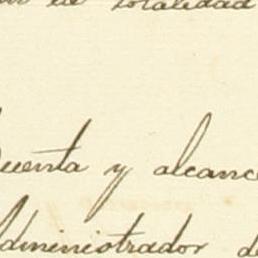 la totalidad
Cuenta y alcance
Administrador de